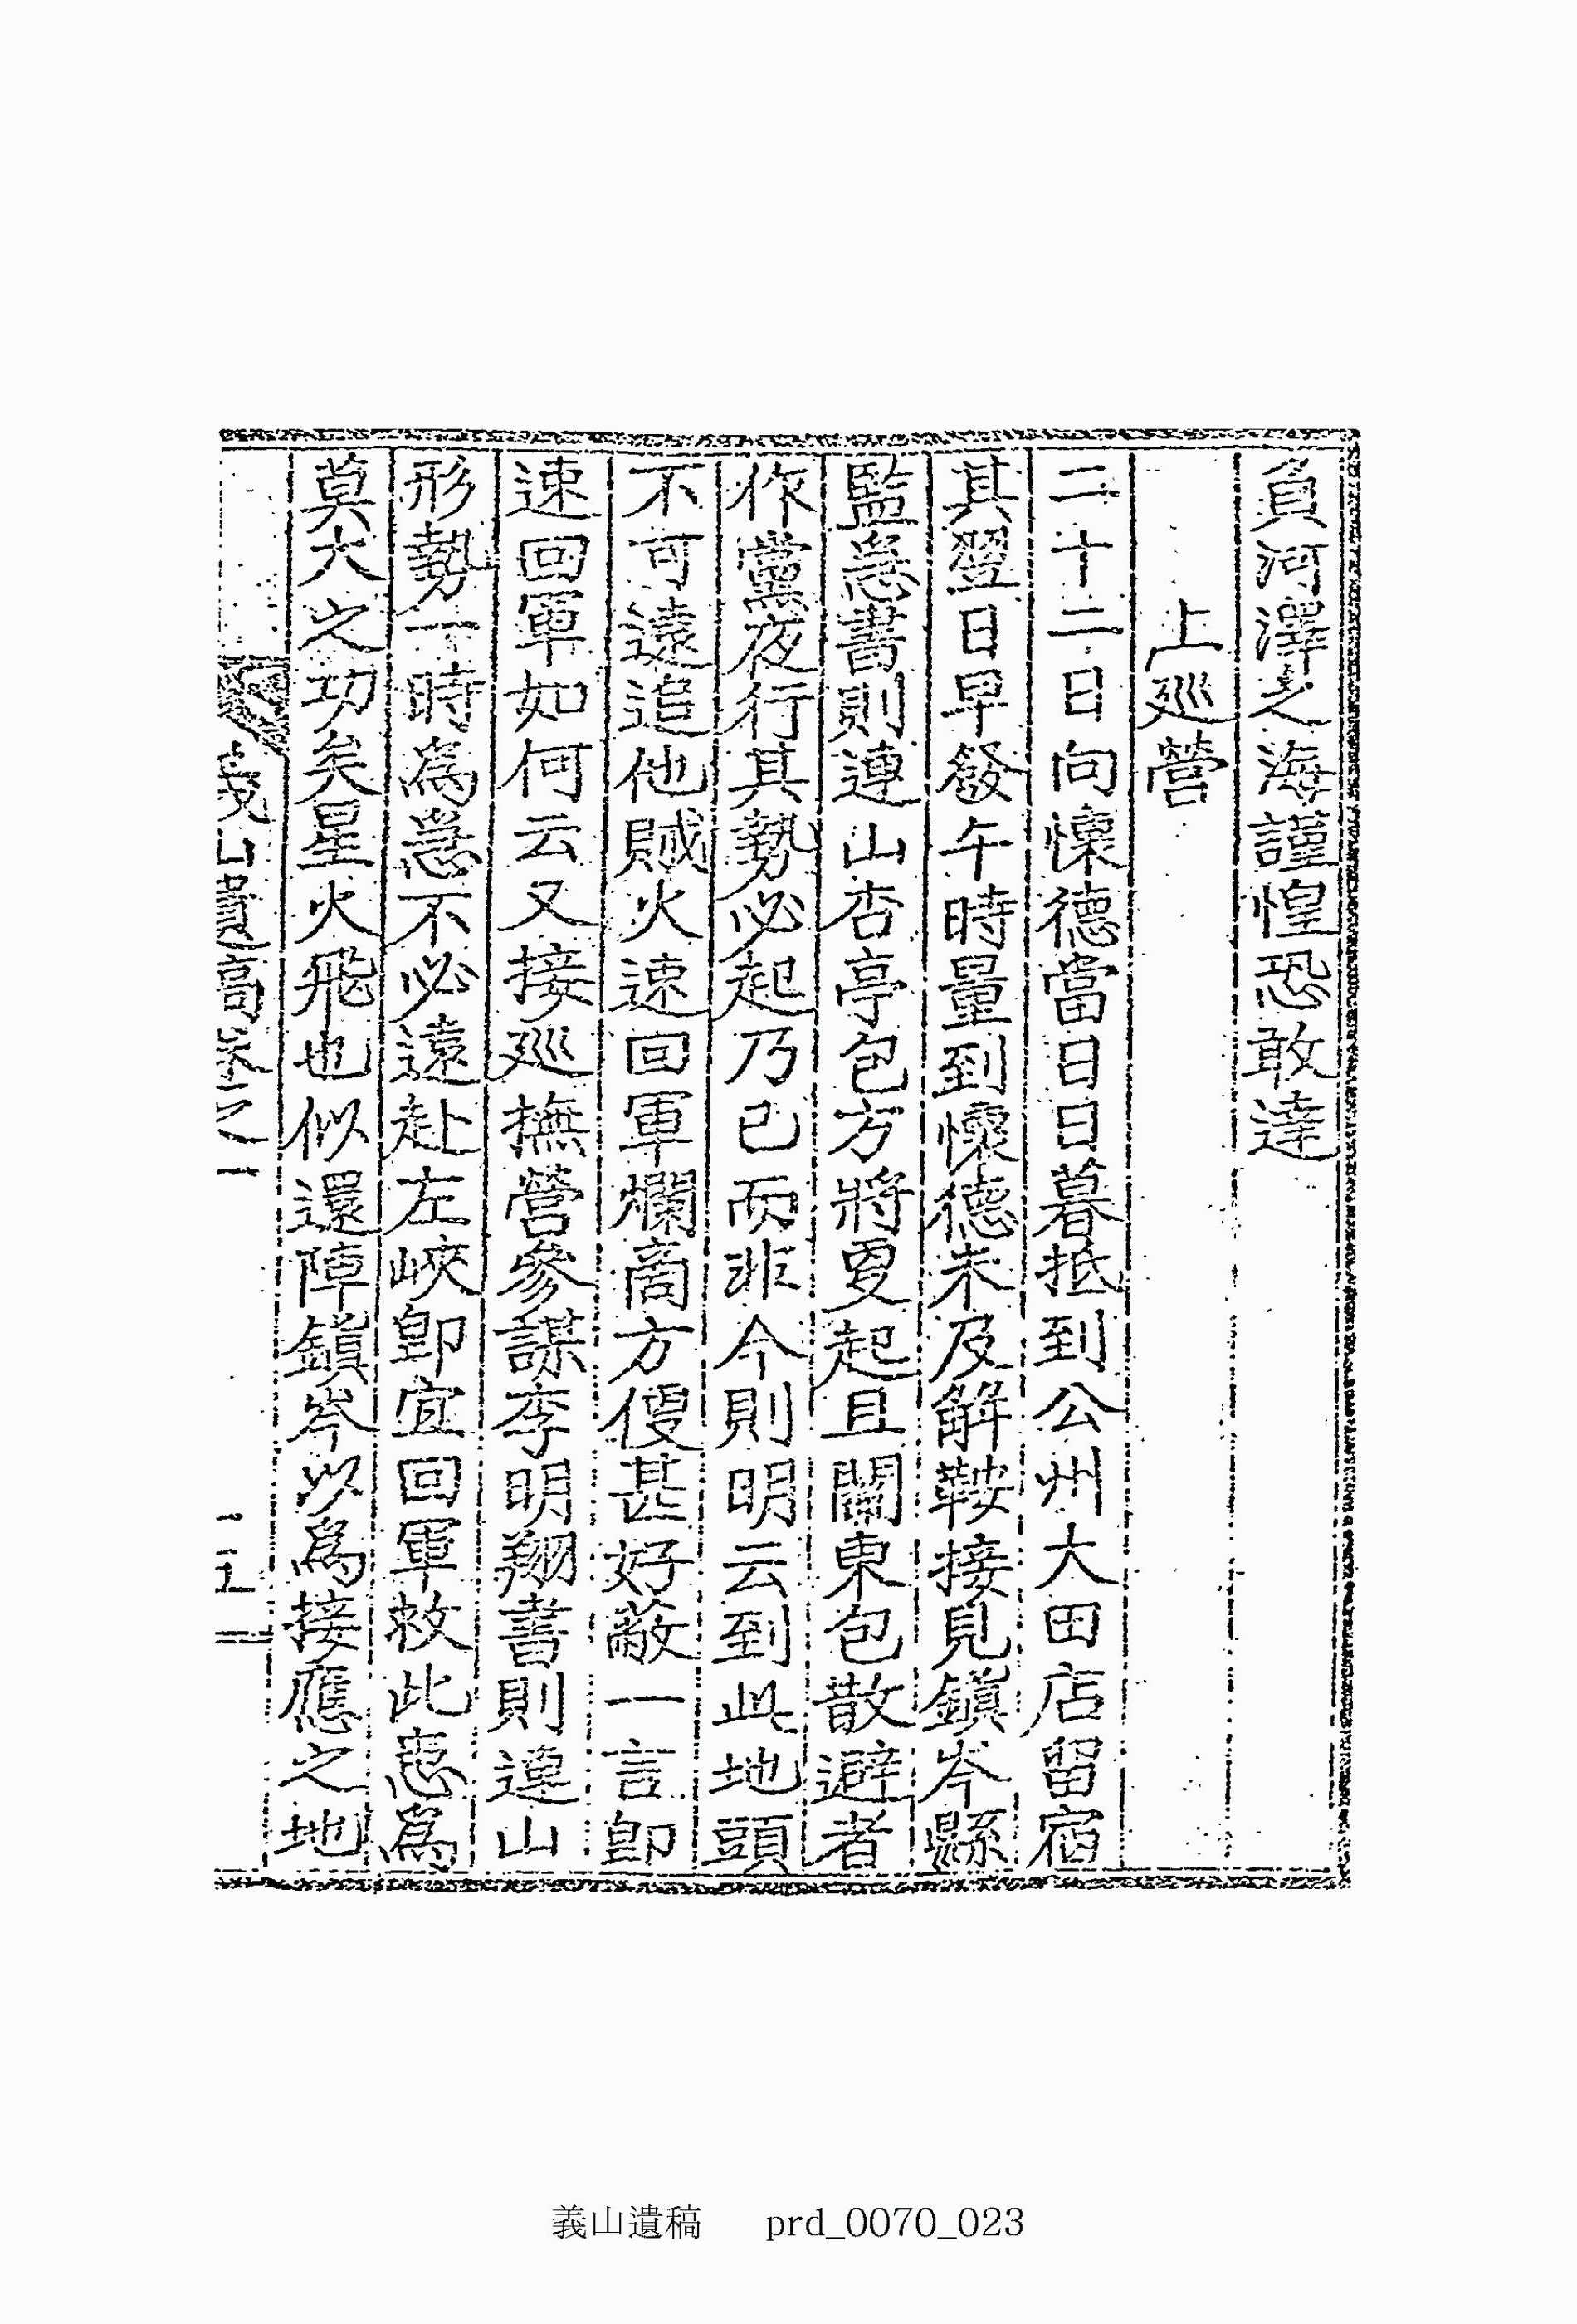 負河澤之海謹惶恐敢達
上廵營
二十二日向懷德當日日暮抵到公州大田店留宿
其翌日早發午時量到懷德未及解鞍接見鎭岑縣
監急書則連山杏亭包方將更起且關東包散避者
作黨夜行其勢必起乃已而非今則明云到此地頭
不可遠追他賊火速回軍爛商方便甚好蔽一言卽
速回軍如何云又接廵撫營參謀李明翔書則連山
形勢一時爲急不必遠赴左峽卽宜回軍救此恙爲
莫大之功矣星火飛也似還陣鎭岑以爲接應之地
義山遺稿卷之二
義山遺稿 prd_0070_023